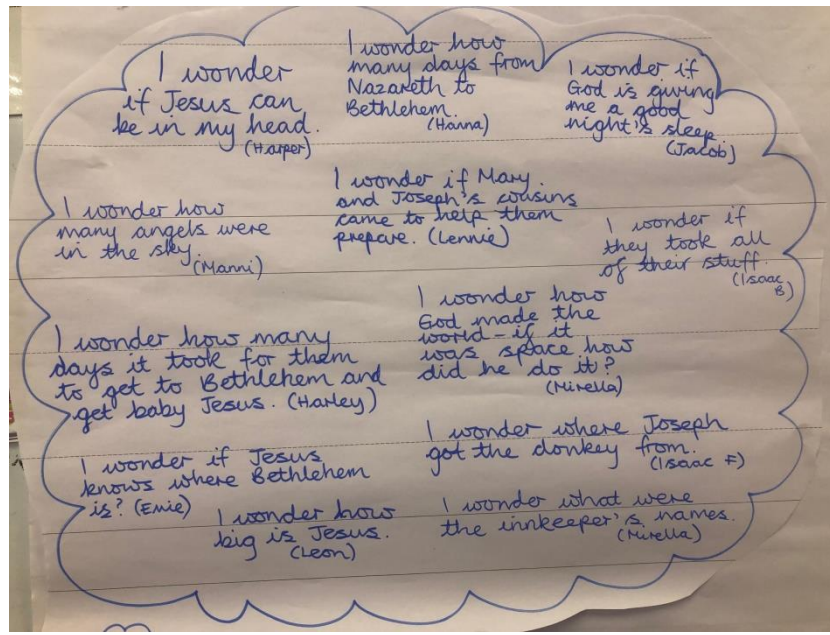 I wonder
if Jesus can
be in my head.
(Harper)
I wonder how
many days from
Nazareth to
Bethlehem.
(Hanna)
I wonder if
God is giving
me a good
night's sleep
(Jacob)
I wonder how
many angels were
in the sky.
(Manni)
I wonder if Mary
and Joseph's cousins
came to help them
prepare. (Lennie)
I wonder if
they took all
of their stuff.
(Isaac
B)
I wonder how many
days it took for them
to get to Bethlehem and
get baby Jesus. (Harley)
I wonder how
God made the
world - if it
was space how
did he do it?
(Mirella)
I wonder if Jesus
knows where Bethlehem
is? (Emie)
I wonder where Joseph
got the donkey from.
(Isaac F)
I wonder how
big is Jesus.
(Leon)
I wonder what were
the innkeeper's names.
(Mirella)